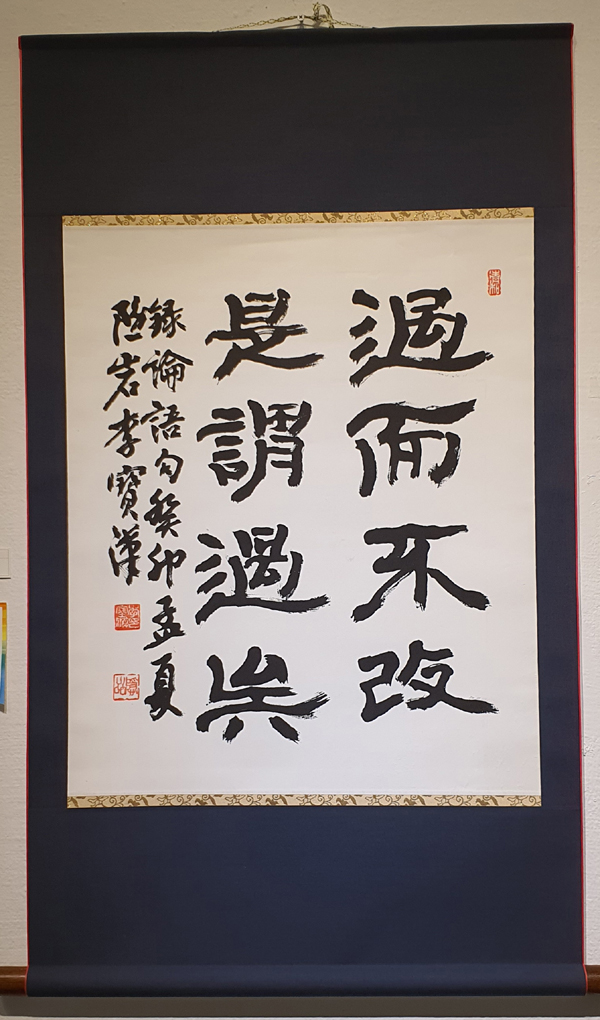 清和
過而不改
是謂過矣
錄論語句癸卯孟夏
隱岩李寶漢